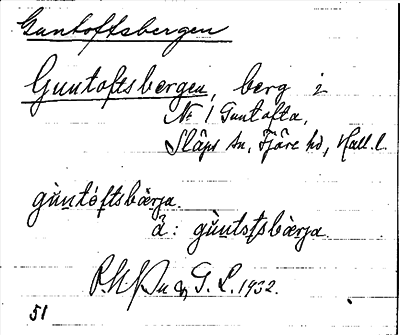 Guntoftsbergen
Guntoftsbergen, berg i
№ 1 Guntofta,
Släps sn, Fjäre hd, Hall. l.
gùntóftsbærja
ä: gùntstsbàrja
G. L. 1932.
51